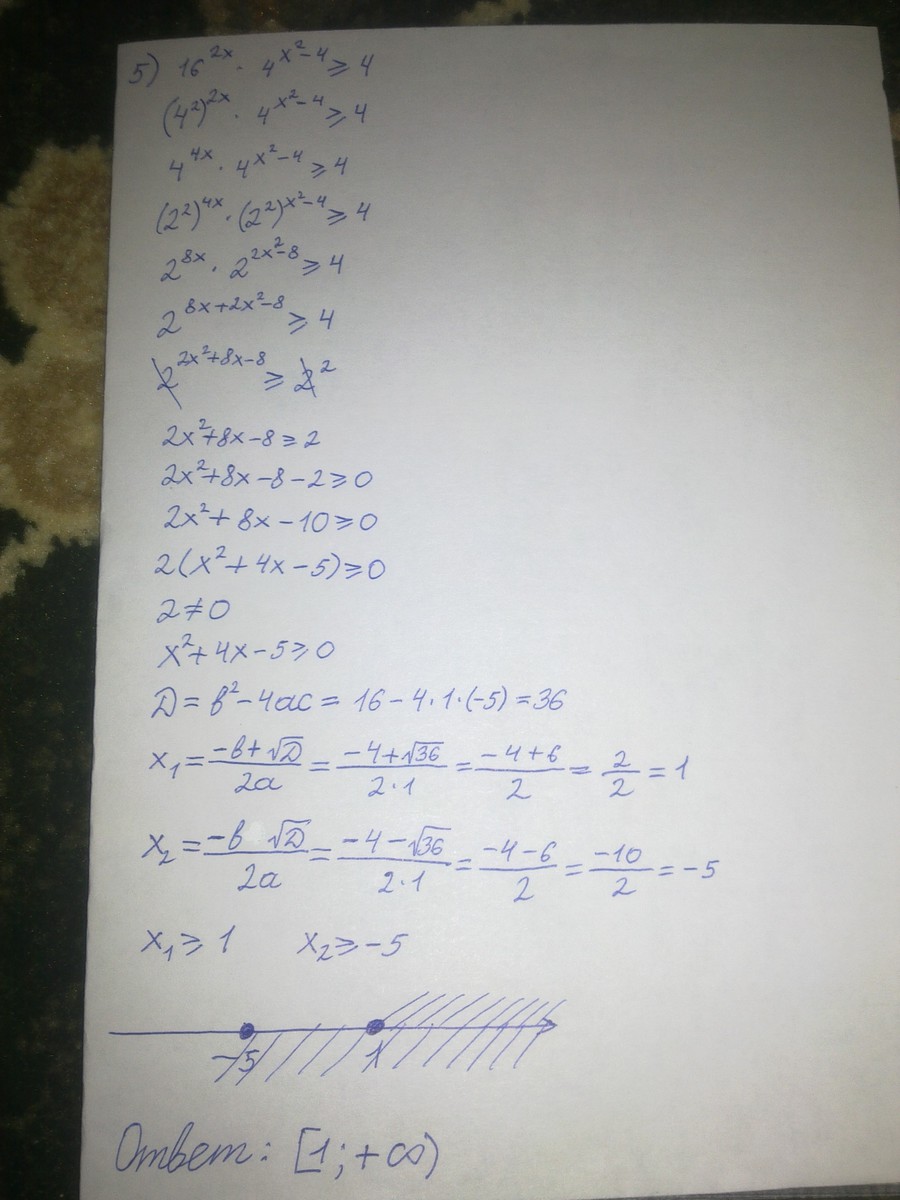 5) 16^{2x} · 4^{x²-4} ⩾ 4
(4²)^{2x} · 4^{x²-4} ⩾ 4
4^{4x} · 4^{x²-4} ⩾ 4
(2²)^{4x} · (2²)^{x²-4} ⩾ 4
2^{8x} · 2^{2x²-8} ⩾ 4
2^{8x+2x²-8} ⩾ 4
2^{2x²+8x-8} ⩾ 2²
2x²+8x-8 ⩾ 2
2x²+8x-8-2 ⩾ 0
2x²+8x-10 ⩾ 0
2(x²+4x-5) ⩾ 0
2 ≠ 0
x²+4x-5 ⩾ 0
D = b²-4ac = 16-4·1·(-5) = 36
x₁ = (-b+√D)/(2a) = (-4+√36)/(2·1) = (-4+6)/2 = 2/2 = 1
x₂ = (-b √D)/(2a) = (-4-√36)/(2·1) = (-4-6)/2 = (-10)/2 = -5
x₁ ⩾ 1 x₂ ⩾ -5
-5 1
Ответ: [1; +∞)